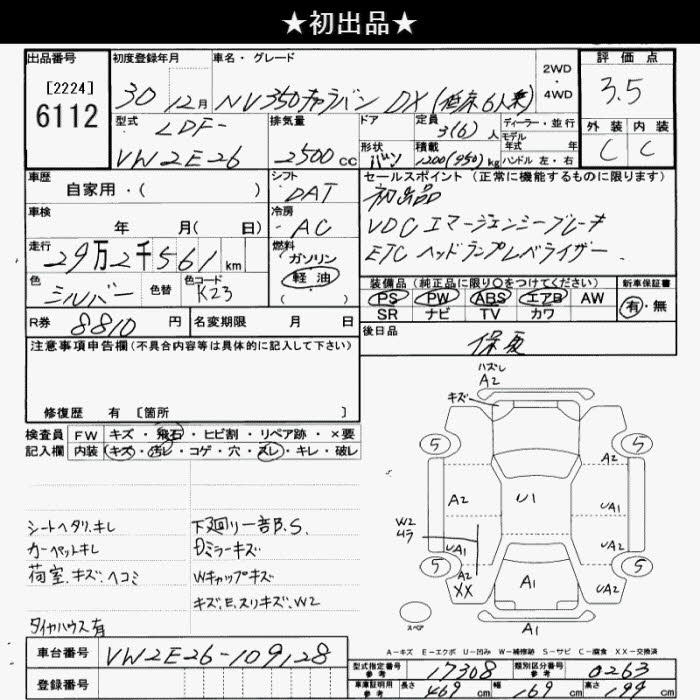 ★初出品★
出品番号
[2224]
6112
初度登録年月
30 12月
車名・グレード
NV350キャラバン DX (低床6人乗)
2WD
4WD
評価点
3.5
外装 内装
C C
型式
LDF-
VW2E-26
排気量
2500 cc
ドア
形状
バン
定員
3(6)人
積載
1200(950)kg
ディーラー・並行
モデル
年式 年
ハンドル 左・右
車歴
自家用・( )
シフト
DAT
セールスポイント(正常に機能するものに限ります)
初出品
VDC エマージェンシーブレーキ
ETC ヘッドランプレベライザー
車検
年 月( 日)
冷房
AC
走行
29万2千561km
燃料
ガソリン
軽油
( )
色
シルバー
色替
色コード
K23
装備品(純正品に限り○をつけてください)
PS PW ABS エアB AW
SR ナビ TV カワ
新車保証書
有・無
R券
8810円
名変期限 月 日
後日品
保夏
注意事項申告欄(不具合内容等は具体的に記入して下さい)
修復歴 有 [箇所 ]
検査員
記入欄
FW キズ・飛石・ヒビ割・リペア跡・×要
内装 キズ・汚レ・コゲ・穴・スレ・キレ・破レ
シートヘタリ、キレ
カーペットキレ
荷室、キズ、ヘコミ
タイヤハウス有
下廻り一部B.S.
Dミラーキズ
Wキャップキズ
キズ、E、スリキズ、W2
ハズレ
A2
キズ
5
5
A2
A2
U1
UA1
W2
ムラ
UA1
UA1
5
5
A2
XX
A1
UA2
スペア
A1
A-キズ E-エクボ U-凹み W-補修跡 S-サビ C-腐食 XX-交換済
車台番号
VW2E26-109128
登録番号
型式指定番号
参考
17308
類別区分番号
参考
0263
車庫証明用
参考
長さ
469cm
幅
169cm
高さ
199cm